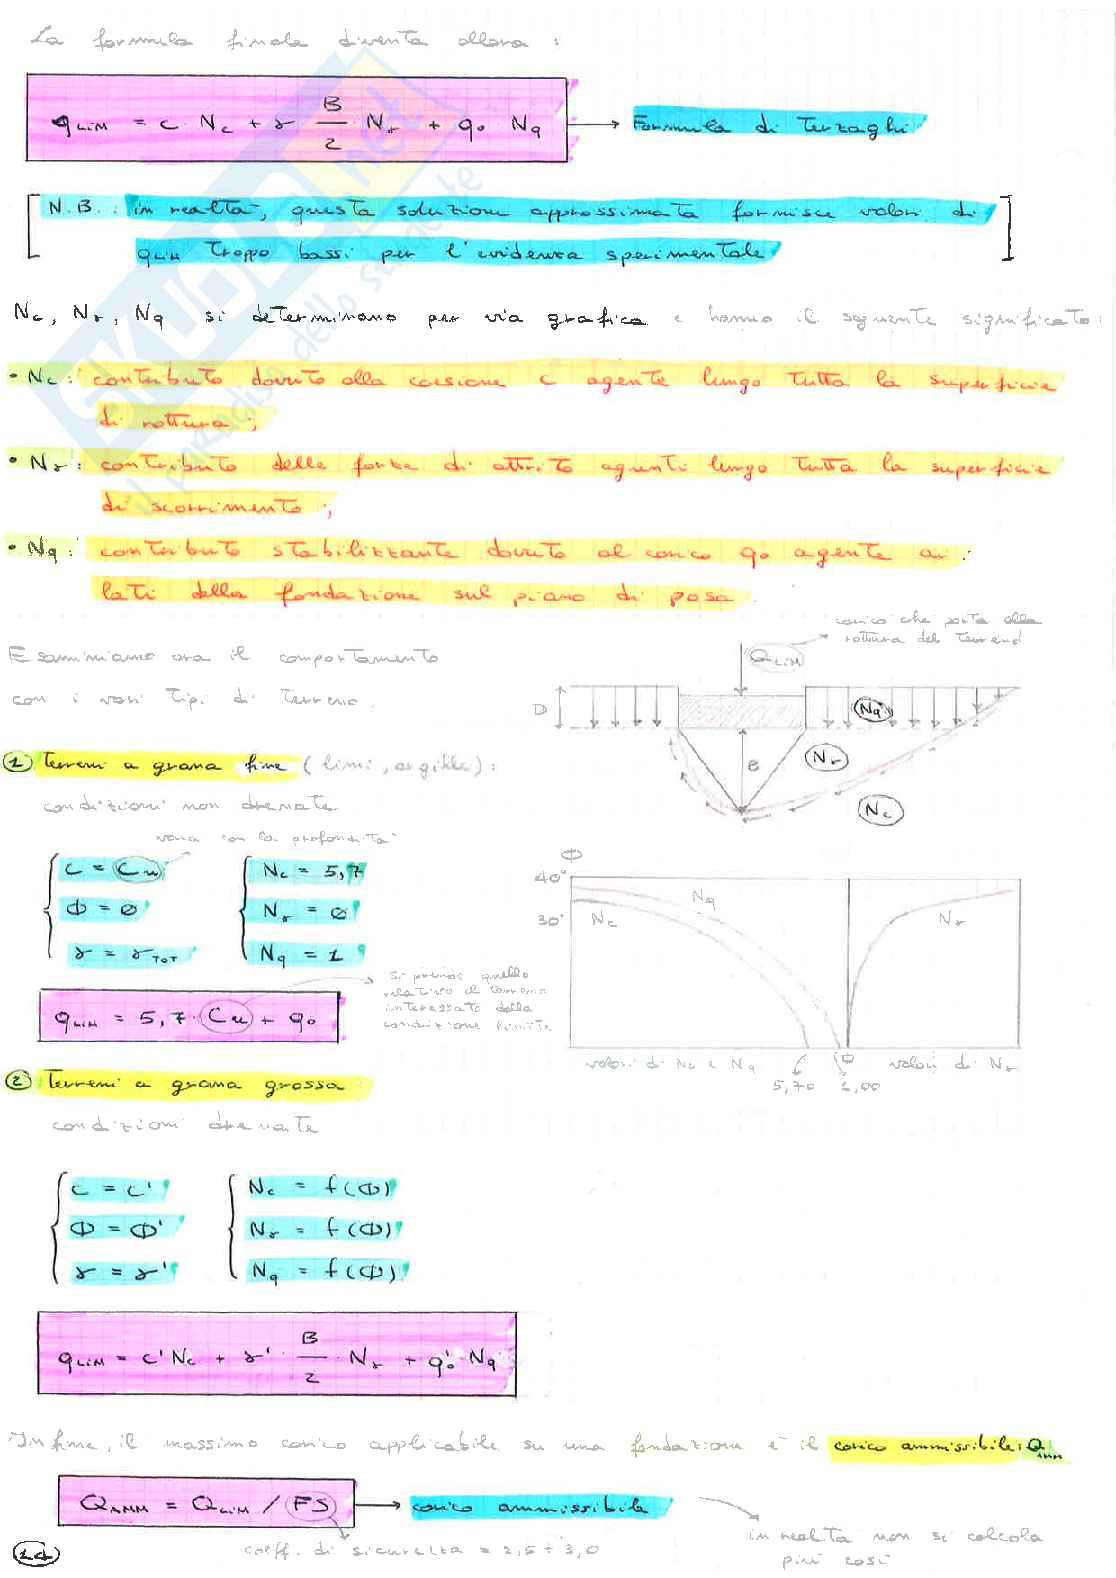 La formula finale diventa allora :
qLIM = c · Nc + γ · B/2 · Nγ + q0 Nq → Formula di Terzaghi
N.B. : in realtà, questa soluzione approssimata fornisce valori di
qLIM troppo bassi per l'evidenza sperimentale
Nc, Nγ, Nq si determinano per via grafica e hanno il seguente significato :
• Nc : contributo dovuto alla coesione c agente lungo tutta la superficie
di rottura ;
• Nγ : contributo delle forze di attrito agenti lungo tutta la superficie
di scorrimento ;
• Nq : contributo stabilizzante dovuto al carico q0 agente ai
lati della fondazione sul piano di posa.
carico che porta alla
rottura del terreno
QLIM
Esaminiamo ora il comportamento
con i vari tipi di terreno.
D
Nq
B
Nγ
Nc
1 Terreni a grana fine (limi, argille) :
condizioni non drenate
varia con la profondità
c = Cu
Φ = 0
γ = γTOT
Nc = 5,7
Nγ = 0
Nq = 1
si prende quello
relativo al terreno
interessato dalla
condizione limite
qLIM = 5,7 · Cu + q0
Φ
40°
30°
Nc
Nq
Nγ
valori di Nc e Nq
0
valori di Nγ
5,70
1,00
2 Terreni a grana grossa :
condizioni drenate
c = c'
Φ = Φ'
γ = γ'
Nc = f(Φ)
Nγ = f(Φ)
Nq = f(Φ)
qLIM = c'Nc + γ' · B/2 · Nγ + q0' · Nq
Infine, il massimo carico applicabile su una fondazione è il carico ammissibile: QAMM
QAMM = QLIM / FS → carico ammissibile
coeff. di sicurezza = 2,5 ÷ 3,0
in realtà non si calcola
più così
SKUOLA.net
il paradiso dello studente